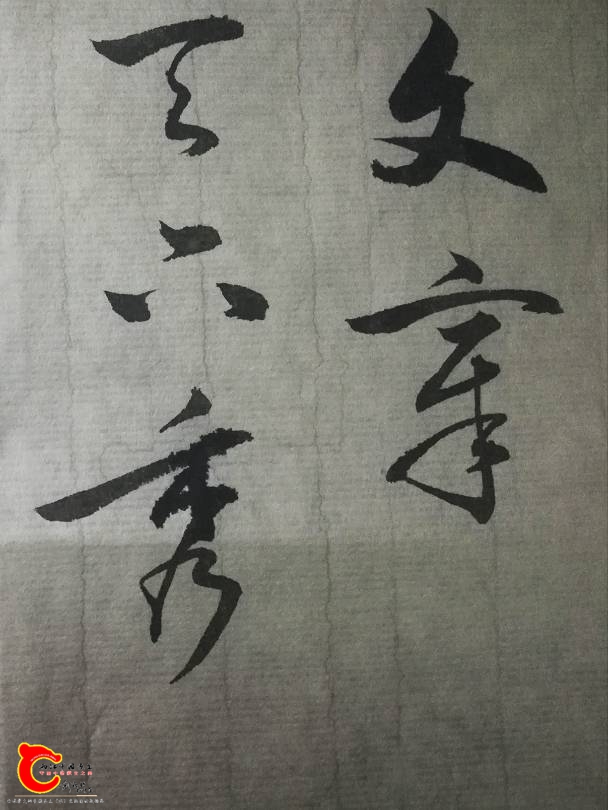 文章
天下秀